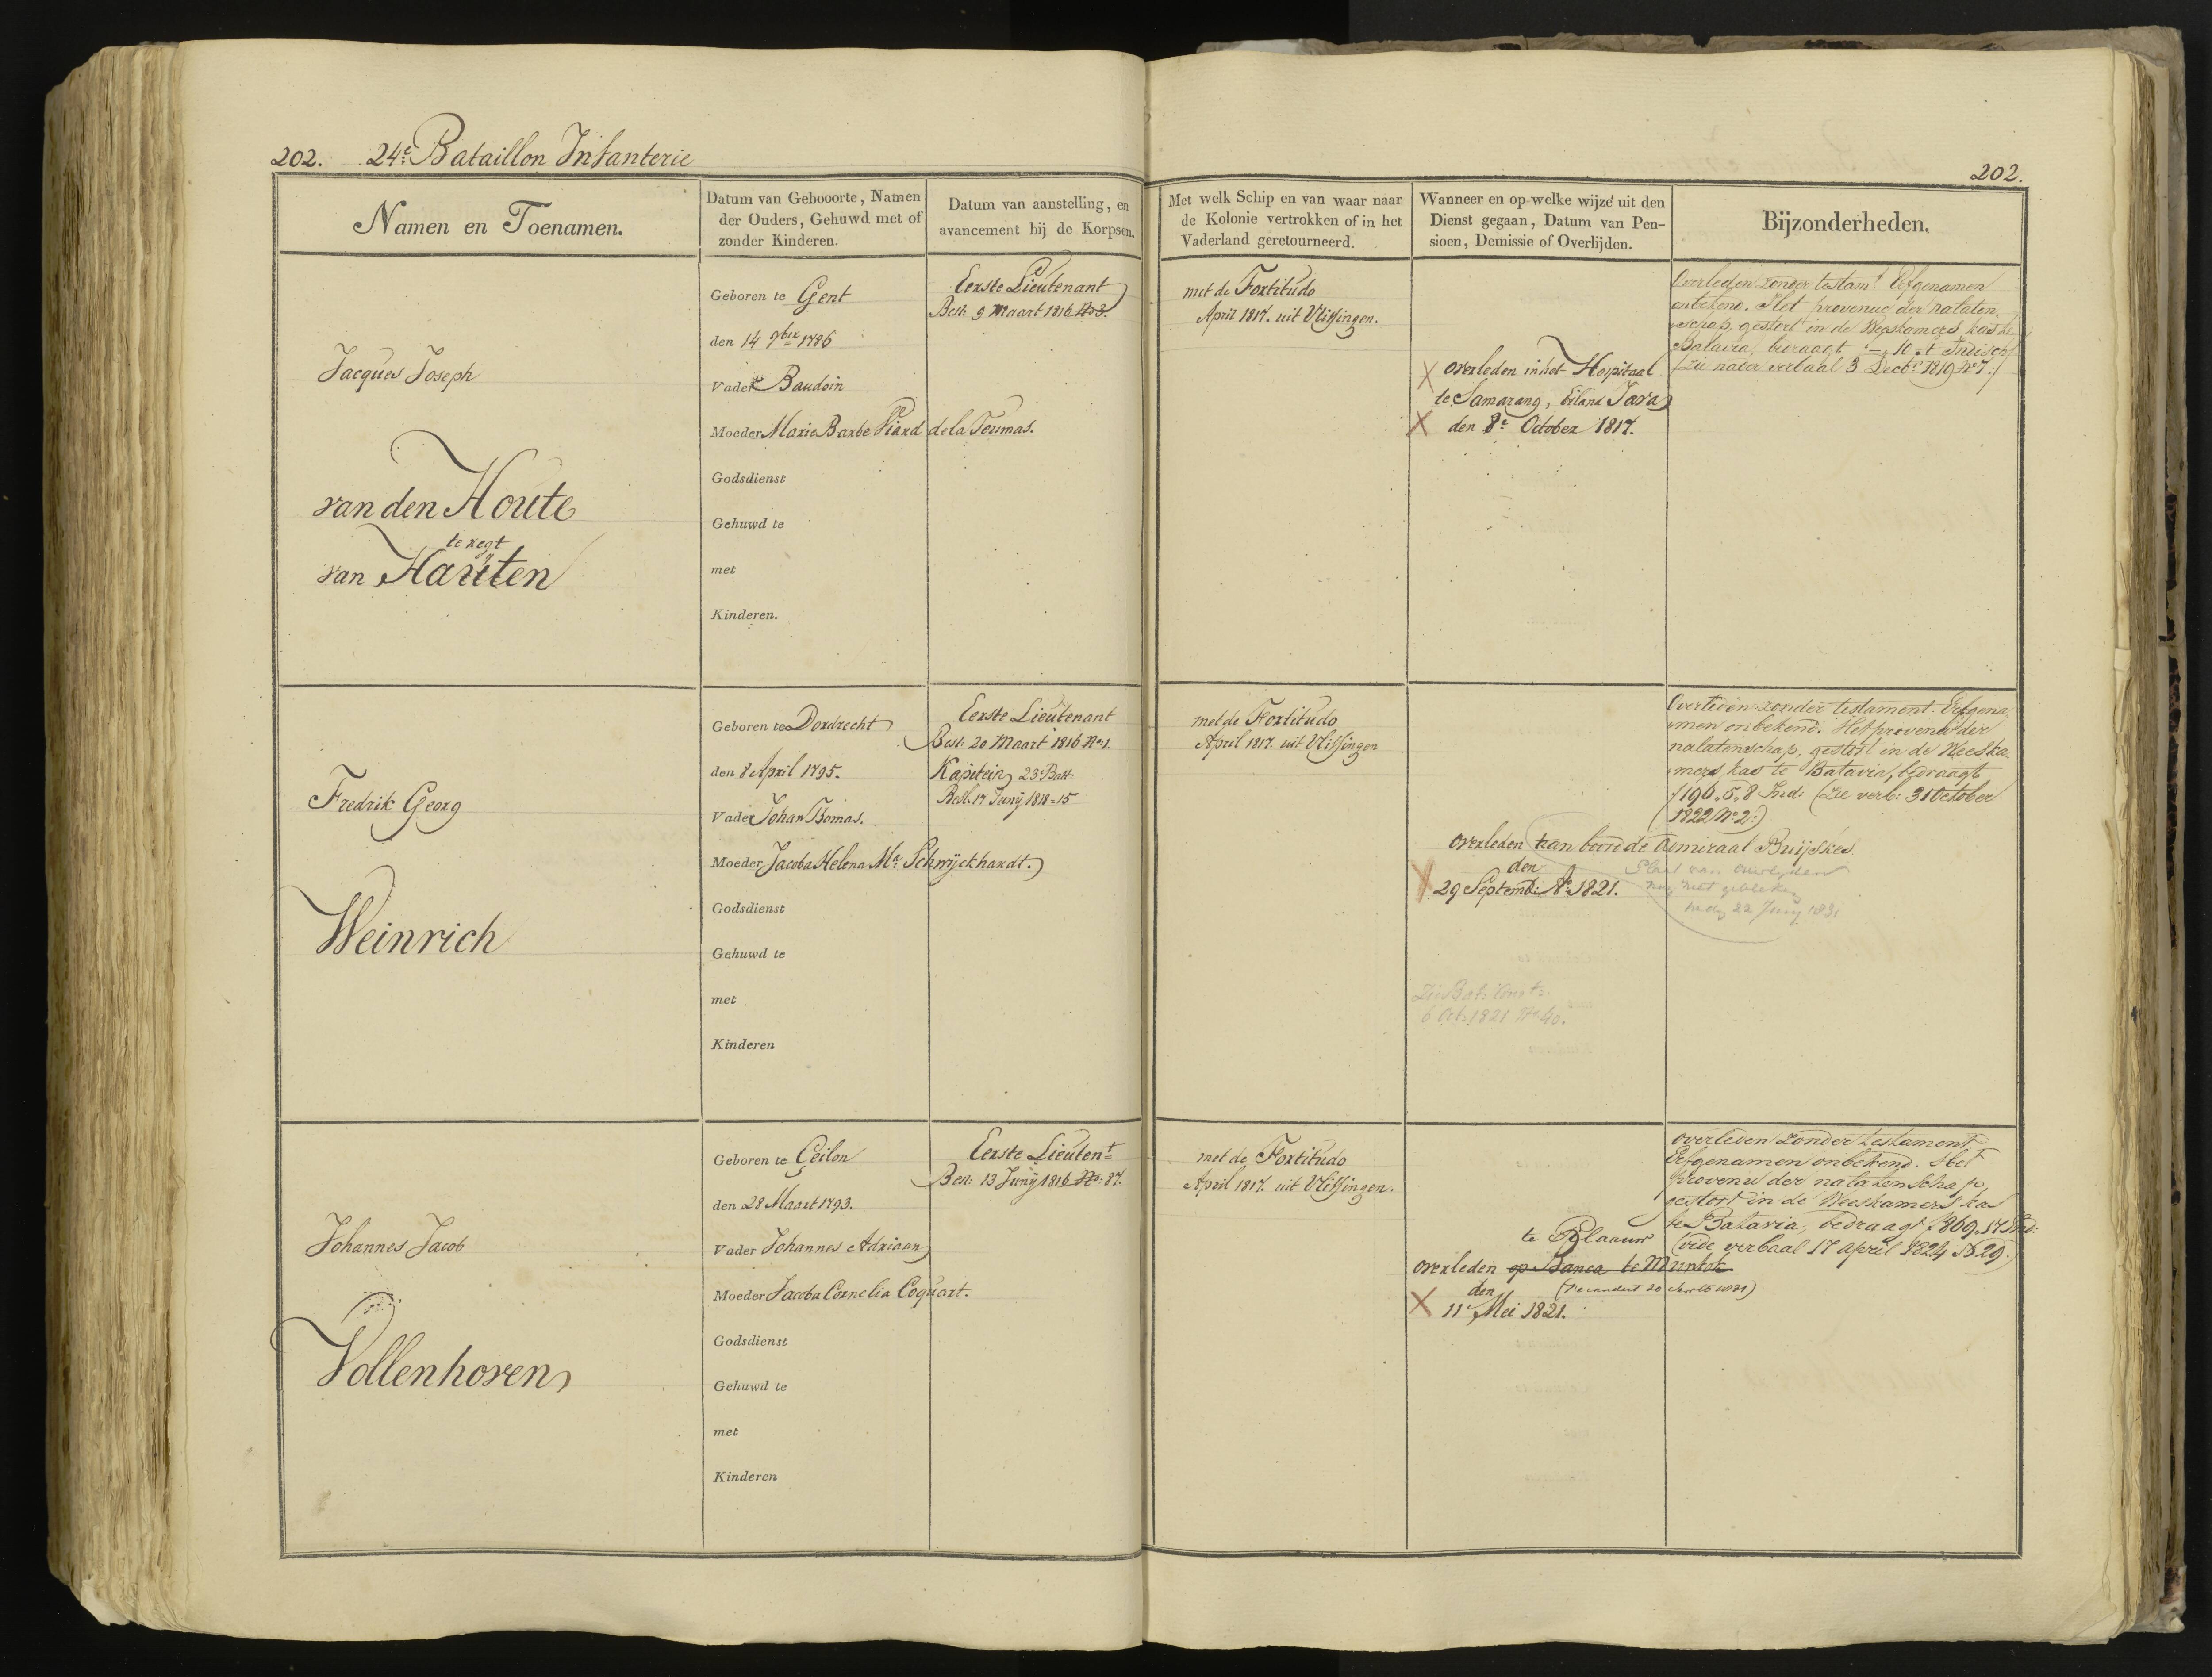 202. 24e Bataillon Infanterie
202.
Namen en Toenamen.
Datum van Gebooorte, Namen
der Ouders, Gehuwd met of
zonder Kinderen.
Datum van aanstelling, en
avancement bij de Korpsen.
Met welk Schip en van waar naar
de Kolonie vertrokken of in het
Vaderland geretourneerd.
Wanneer en op welke wijze uit den
Dienst gegaan, Datum van Pen-
sioen, Demissie of Overlijden.
Bijzonderheden.
Jacques Joseph
van den Houte
te regt
van Hauten
Geboren te Gent
den 14 9ber 1786
Vader Baudoin
Moeder Marie Barbe Piard de la Toumas.
Godsdienst
Gehuwd te
met
Kinderen.
Eerste Lieutenant
Besl: 9 Maart 1816 No 3.
met de Fortitudo
April 1817. uit Vlissingen.
overleden in het Hospitaal
te Samarang, Eiland Java
den 8e October 1817.
Overleden zonder testamt Erfgenamen
onbekend. Het provenue der nalaten,
schap, gestort in de Weeskamers kas te
Batavia, bedraagt f –„ 10„ + Indisch/
(Zie nader verbaal 3 Decbr 1819 No 7:/
Fredrik Georg
Weinrich
Geboren te Dordrecht
den 8 April 1795.
Vader Johan Thomas.
Moeder Jacoba Helena Ma. Schwijckhardt.
Godsdienst
Gehuwd te
met
Kinderen
Eerste Lieutenant
Besl: 20 Maart 1816 No 1.
Kapitein 23e Batt:
Besl. 17 Junij 1818 = 15
met de Fortitudo
April 1817. uit Vlissingen
overleden aan boord de Admiraal Buijskes
den
29 Septemb: Ao 1821.
Zie Bat: Cour t:
6 Oct: 1821 No 40.
Overleden zonder testament. Erfgena,
men onbekend. Het provenu der
nalatenschap, gestort in de Weeska,
mers kas te Batavia, bedraagt
f 196„5„8 Ind: (Zie verb: 31 October
1822 No 2:)
nog niet gebleken
22 Junij 1831
Johannes Jacob
Vollenhoven
Geboren te Ceilon
den 28 Maart 1793.
Vader Johannes Adriaan
Moeder Jacoba Cornelia Coquart.
Godsdienst
Gehuwd te
met
Kinderen
Eerste Lieutent
Besl: 13 Junij 1816 No: 87.
met de Fortitudo
April 1817. uit Vlissingen.
te Plaauw
overleden op Banca te Muntok
den
11 Mei 1821.
overleden zonder testament
Erfgenamen onbekend. Het
provenu der nalatenschap,
gestort in de Weeskamers kas
te Batavia, bedraagt f 869„17 Ind:
(vide verbaal 17 April 1824 No 29.)